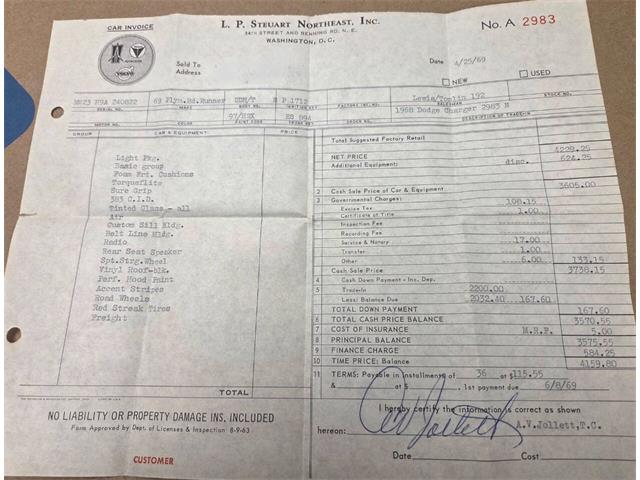 CAR INVOICE
L. P. STEUART NORTHEAST, INC.
34TH STREET AND BENNING RD. N. E.
WASHINGTON, D. C.
No. A 2983
VOLVO
Sold To
Address
Date 4/25/69
NEW
USED
RM23 H9A 240822
69 Plym.Rd.Runner
HDM/T
E P 1712
Lewis/Tomlin 192
SERIAL NO.
MAKE
BODY NO.
IGNITION KEY
FACTORY INV. NO.
SALESMAN
STOCK NO.
97/H2X
ES 89A
1968 Dodge Charger 2983 N
MOTOR NO.
COLOR
PAINT CODE
TRUNK KEY
DESCRIPTION OF TRADE-IN
GROUP
CAR & EQUIPMENT
PRICE
Light Pkg.
Basic group
Foam Fri. Cushions
Torqueflite
Sure Grip
383 C.I.D.
Tinted Glass - all
Air
Custom Sill Mldg.
Belt Line Mldg.
Radio
Rear Seat Speaker
Spt.Strg.Wheel
Vinyl Roof-blk.
Perf. Hood Paint
Accent Stripes
Road Wheels
Red Streak Tires
Freight
TOTAL
Total Suggested Factory Retail 4229.25
NET PRICE disc. 624.25
Additional Equipment:
2 Cash Sale Price of Car & Equipment 3605.00
3 Governmental Charges:
Excise Tax 108.15
Certificate of Title 1.00
Inspection Fee
Recording Fee
Service & Notary 17.00
Transfer 1.00
Other 6.00 133.15
Cash Sale Price 3738.15
4 Cash Down Payment - Inc. Dep.
5 Trade-In 2200.00
Less: Balance Due 2032.40 167.60
TOTAL DOWN PAYMENT 167.60
6 TOTAL CASH PRICE BALANCE 3570.55
7 COST OF INSURANCE M.R.F. 5.00
8 PRINCIPAL BALANCE 3575.55
9 FINANCE CHARGE 584.25
10 TIME PRICE: Balance 4159.80
11 TERMS: Payable in Installments of 36 at $115.55
& at $ 1st payment due 6/8/69
I hereby certify the information is correct as shown
hereon: A.V.Jollett,T.C.
Date Cost
NO LIABILITY OR PROPERTY DAMAGE INS. INCLUDED
Form Approved by Dept. of Licenses & Inspection 8-9-63
CUSTOMER